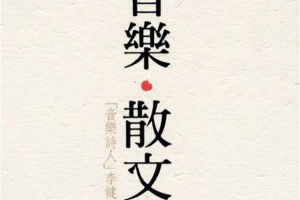 音樂·散文
「音樂詩人」李健